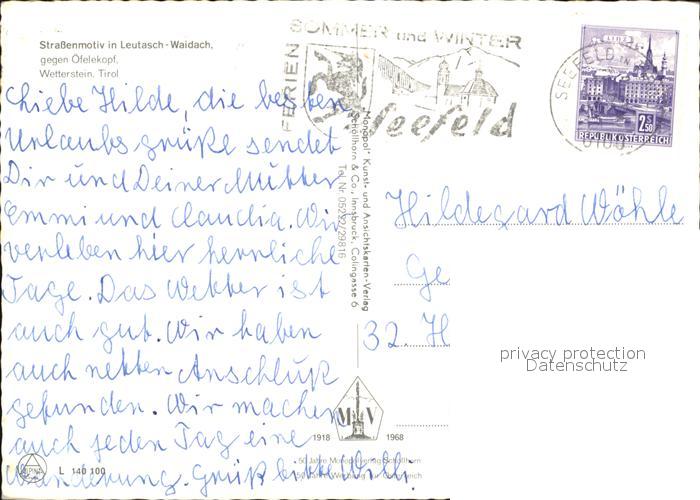 Straßenmotiv in Leutasch-Waidach,
gegen Öfelekopf,
Wetterstein, Tirol
Liebe Hilde, die besten
Urlaubsgrüße sendet
Dir und Deiner Mutter
Emmi und Claudia. Wir
verleben hier herrliche
Tage. Das Wetter ist
auch gut. Wir haben
auch netten Anschluß
gefunden. Wir machen
auch jeden Tag eine
Wanderung. Grüß bitte Willi.
L 140 100
FERIEN
SOMMER und WINTER
Seefeld
Monopol-Kunst- und Ansichtskarten-Verlag
Schöllhorn & Co., Innsbruck, Colingasse 6
Tel. Nr. 05222/29816
MV
1918 1968
50 Jahre Monopolverlag Schöllhorn
50 Jahre Werbung für Österreich
LINZ
2.50 S
REPUBLIK ÖSTERREICH
SEEFELD IN
6100
Hildegard Wöhle
Ge
32. H
privacy protection
Datenschutz